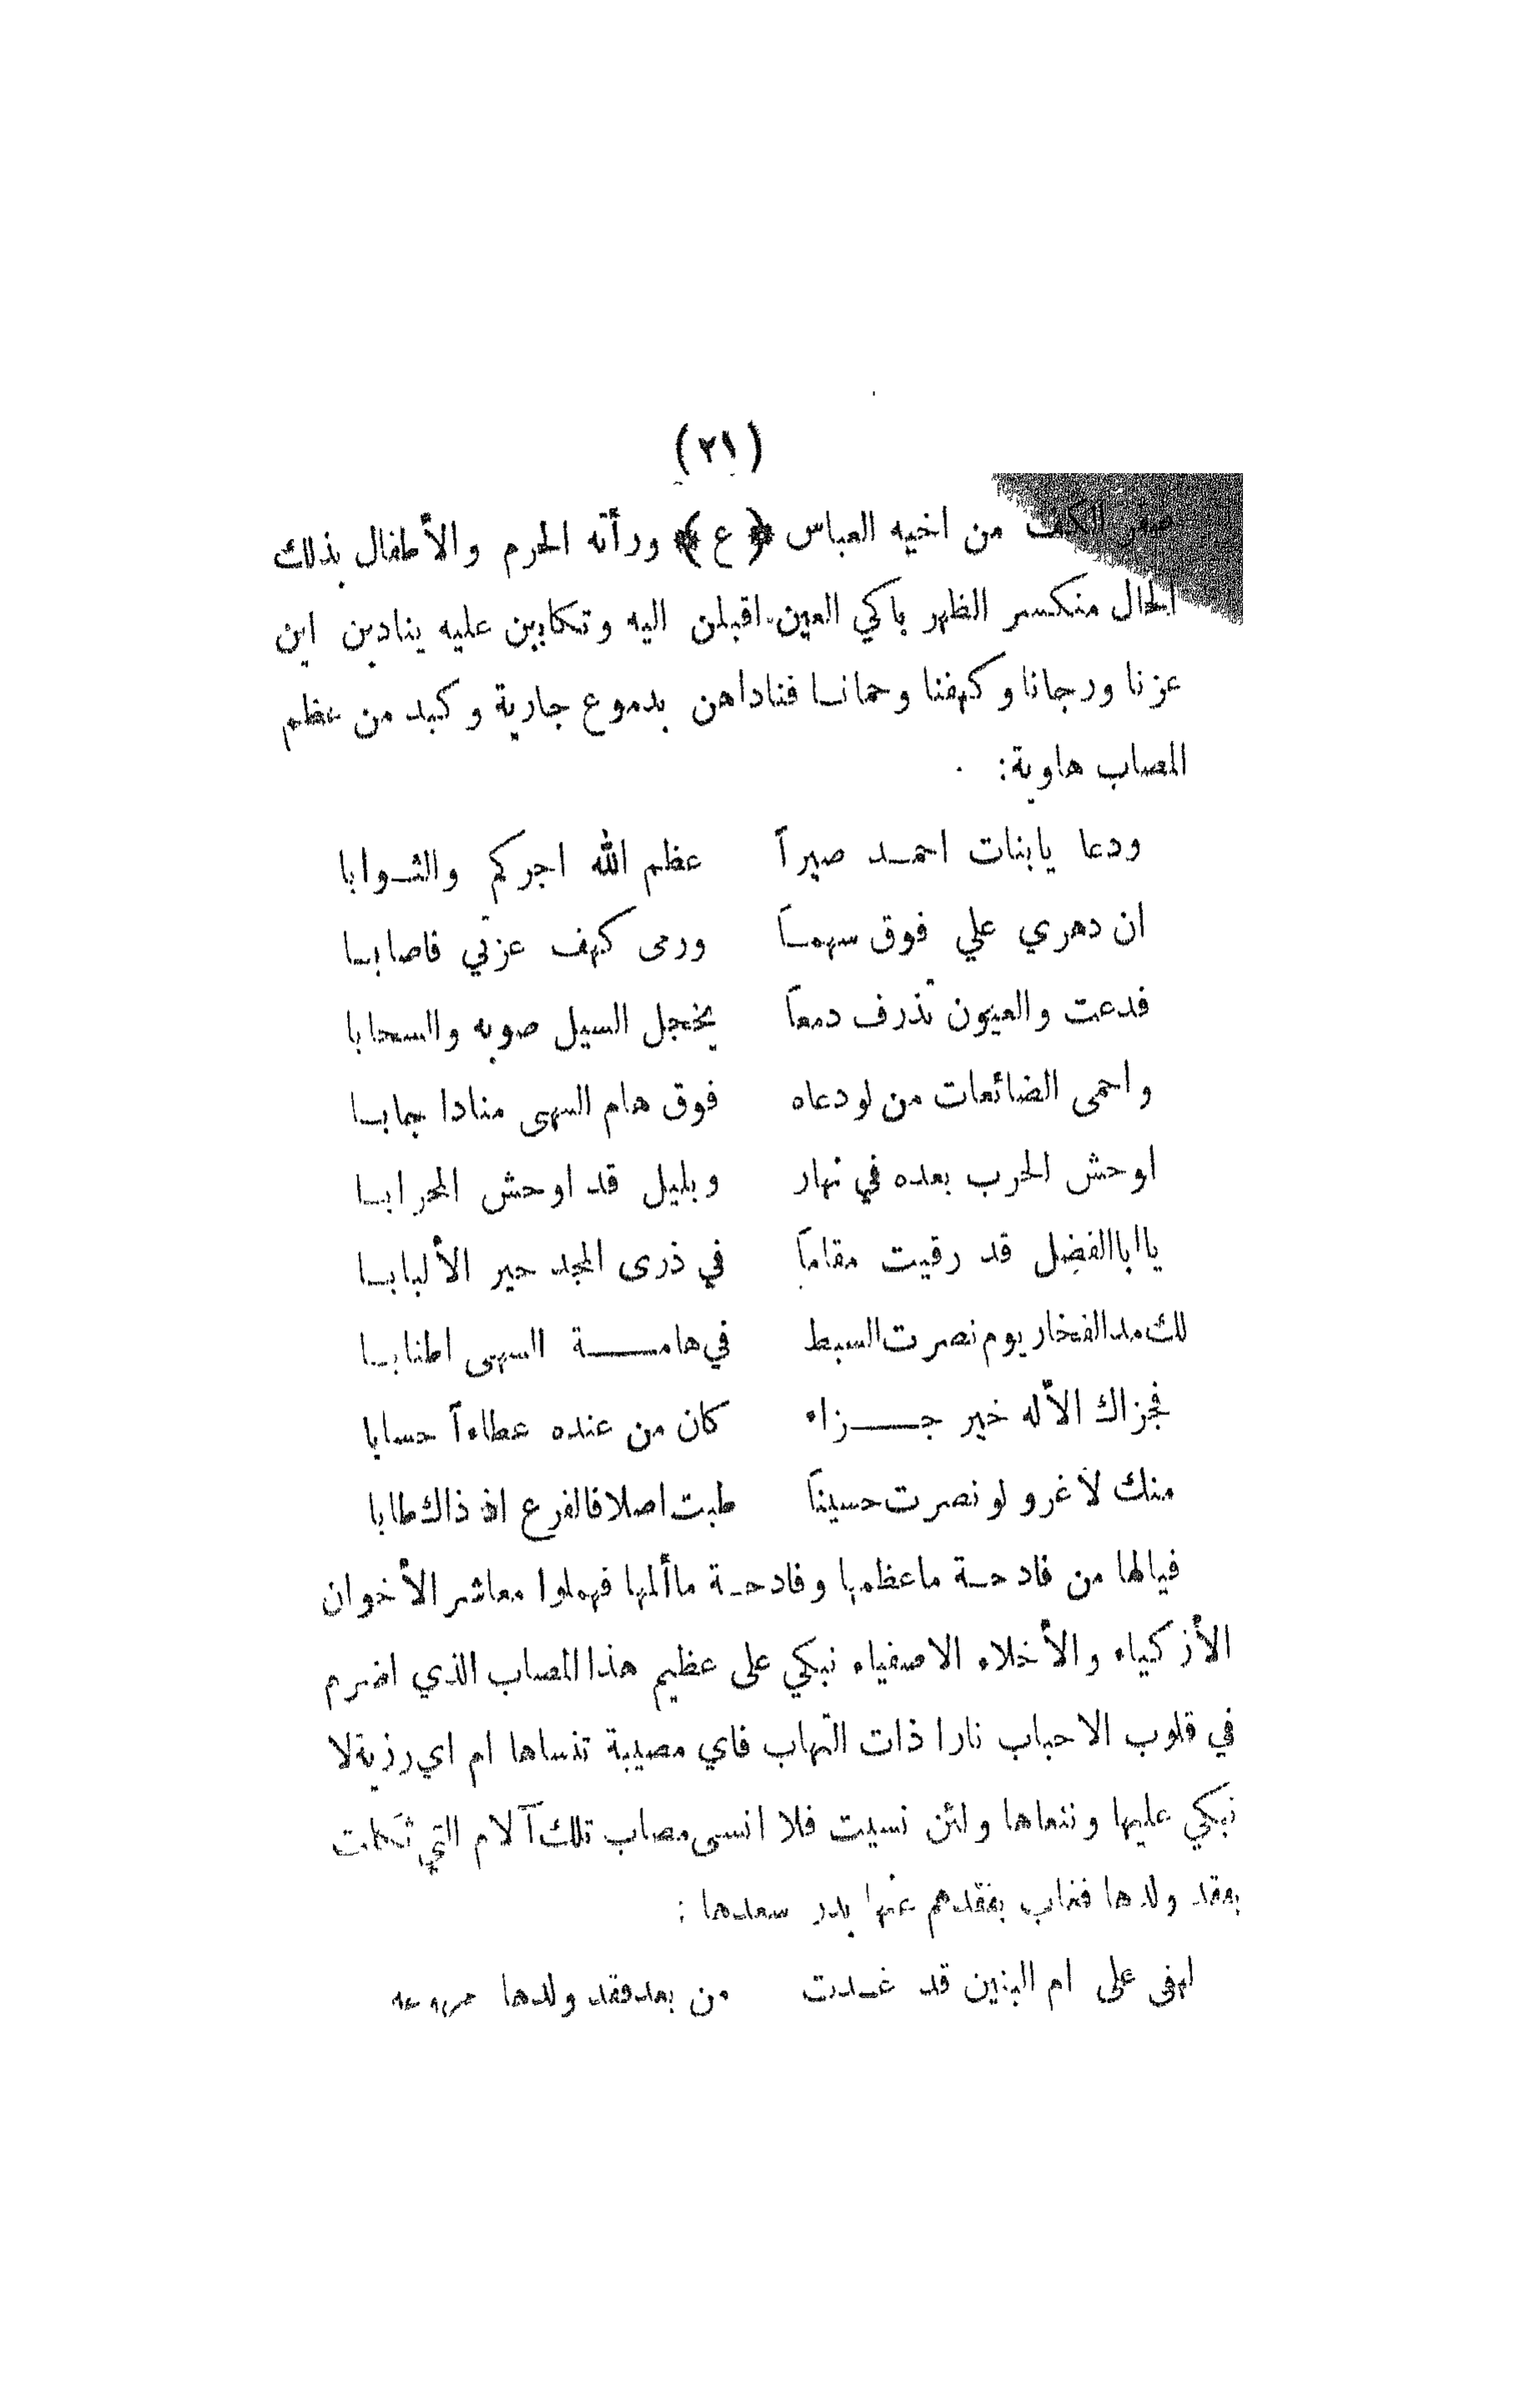 (٢١)
صفر الكف من اخيه العباس ﴿ع﴾ ورأته الحرم والأطفال بذلك
الحال منكسر الظهر باكي العين اقبلن اليه وتكابين عليه ينادين اين
عزنا ورجانا وكهفنا وحمانا فناداهن بدموع جارية وكبد من عظم
المصاب هاوية:
ودعا يابنات احمد صبراً عظم الله اجركم والثوابا
ان دهري علي فوق سهماً ورمى كهف عزتي فاصابا
فدعت والعيون تذرف دمعاً يخجل السيل صوبه والسحابا
واحمى الضائعات من لو دعاه فوق هام السهى منادا جابا
اوحش الحرب بعده في نهار وبليل قد اوحش المحرابا
يا ابا الفضل قد رقيت مقاماً في ذرى المجد حير الألبابا
لك مد الفخار يوم نصرت السبط في هامة السهى اطنابا
فجزاك الأله خير جزاء كان من عنده عطاءاً حسابا
منك لاغرو لو نصرت حسيناً طبت اصلا فالفرع اذ ذاك طابا
فيالها من فادحة ما عظمها وفادحة ما ألمها فهملوا معاشر الأخوان
الأزكياء والأخلاء الاصفياء نبكي على عظيم هذا المصاب الذي اضرم
في قلوب الاحباب نارا ذات التهاب فاي مصيبة تنساها ام اي رزية لا
نبكي عليها وننعاها ولئن نسيت فلا انسى مصاب تلك آلام التي ثكلت
بفقد ولدها فغاب بفقدهم عنها بدر سعدها :
لهفى على ام البنين قد غدت من بعد فقد ولدها